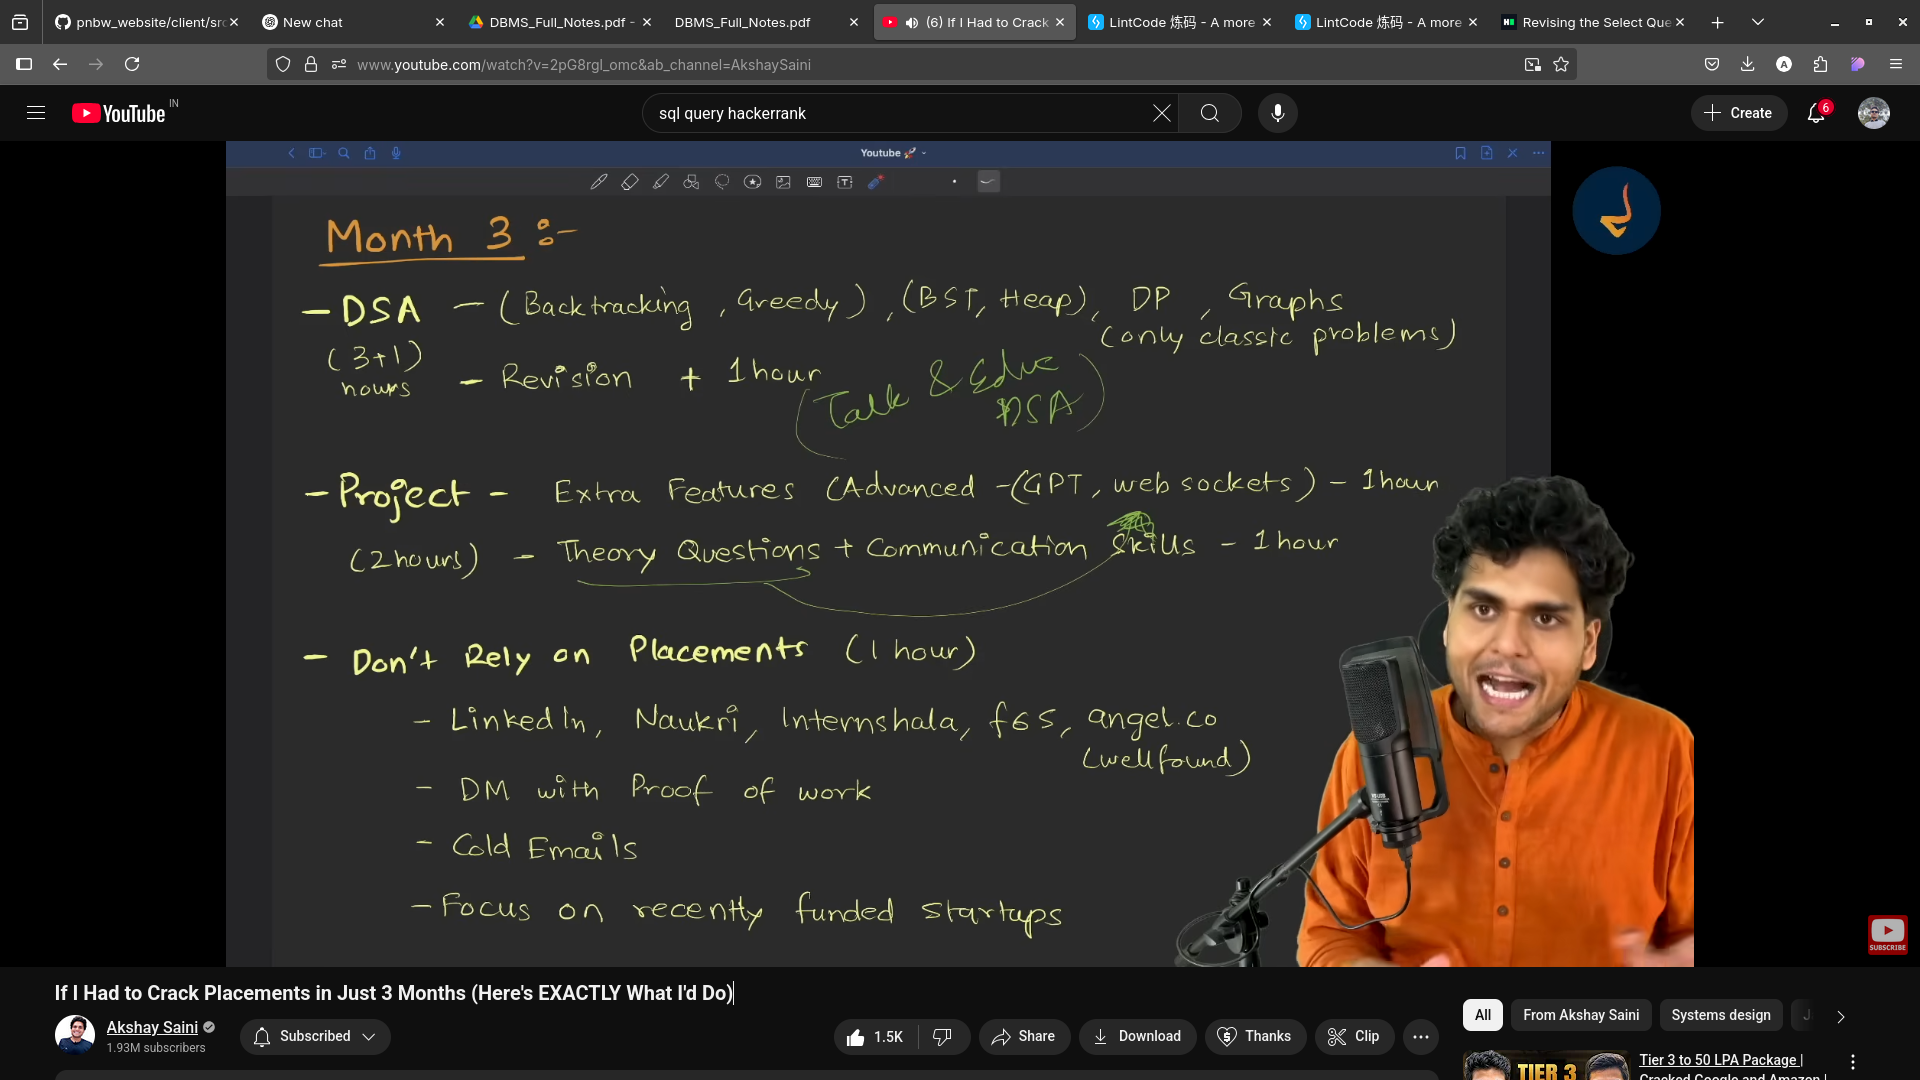 pnbw_website/client/src
New chat
DBMS_Full_Notes.pdf -
DBMS_Full_Notes.pdf
(6) If I Had to Crack
LintCode 炼码 - A more
LintCode 炼码 - A more
Revising the Select Que
www.youtube.com/watch?v=2pG8rgI_omc&ab_channel=AkshaySaini
YouTube IN
sql query hackerrank
Create
6
Youtube 🚀
Month 3 :-
- DSA - (Backtracking, Greedy), (BST, Heap), DP, Graphs
(only classic problems)
(3+1)
hours
- Revision + 1 hour
(Talk & Solve
DSA)
- Project - Extra Features (Advanced - (GPT, web sockets) - 1 hour
(2 hours) - Theory Questions + Communication Skills - 1 hour
- Don't Rely on Placements (1 hour)
- LinkedIn, Naukri, Internshala, f6S, angel.co
(wellfound)
- DM with Proof of work
- Cold Emails
- Focus on recently funded startups
SUBSCRIBE
If I Had to Crack Placements in Just 3 Months (Here's EXACTLY What I'd Do)
Akshay Saini
1.93M subscribers
Subscribed
1.5K
Share
Download
Thanks
Clip
All
From Akshay Saini
Systems design
TIER 3
Tier 3 to 50 LPA Package |
Cracked Google and Amazon |